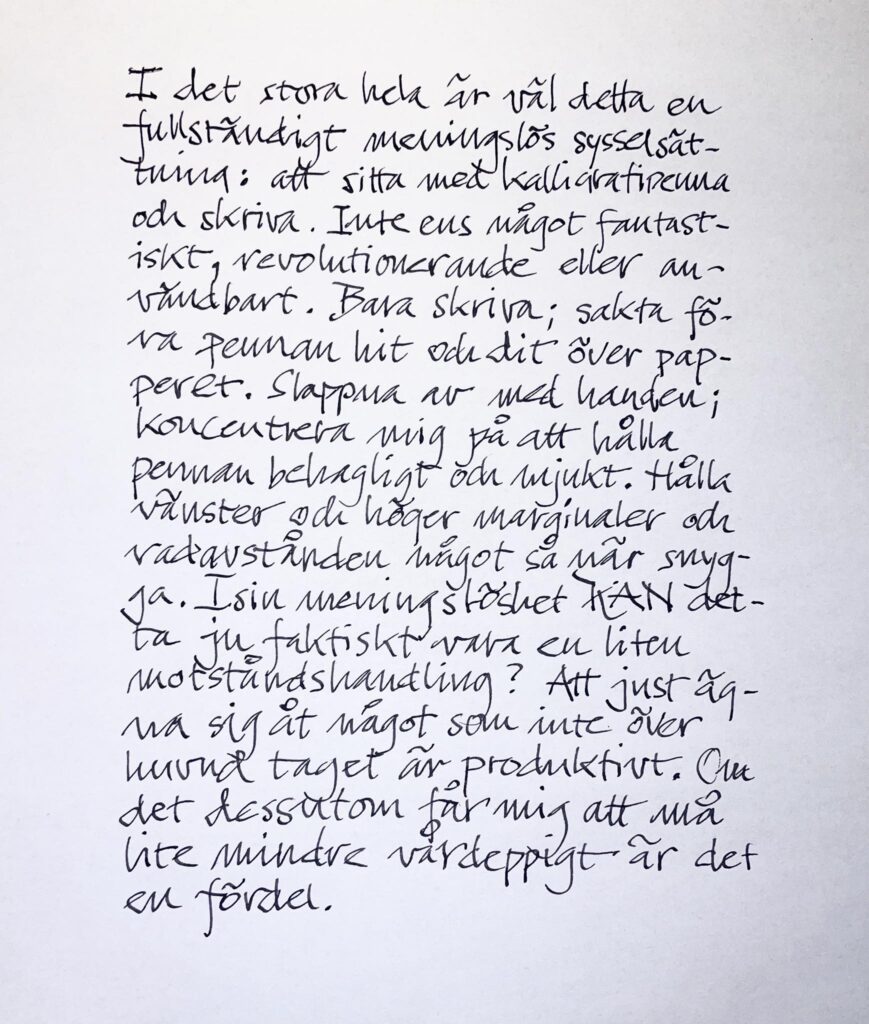 I det stora hela är väl detta en
fullständigt meningslös sysselsät-
tning: att sitta med kalligrafipenna
och skriva. Inte ens något fantast-
iskt, revolutionerande eller an-
vändbart. Bara skriva; sakta fö-
ra pennan hit och dit över pap-
peret. Slappna av med handen;
koncentrera mig på att hålla
pennan behagligt och mjukt. Hålla
vänster och höger marginaler och
radavstånden något så när snyg-
ga. I sin meningslöshet KAN det-
ta ju faktiskt vara en liten
motståndshandling? Att just äg-
na sig åt något som inte över
huvud taget är produktivt. Om
det dessutom får mig att må
lite mindre vårdeppigt är det
en fördel.